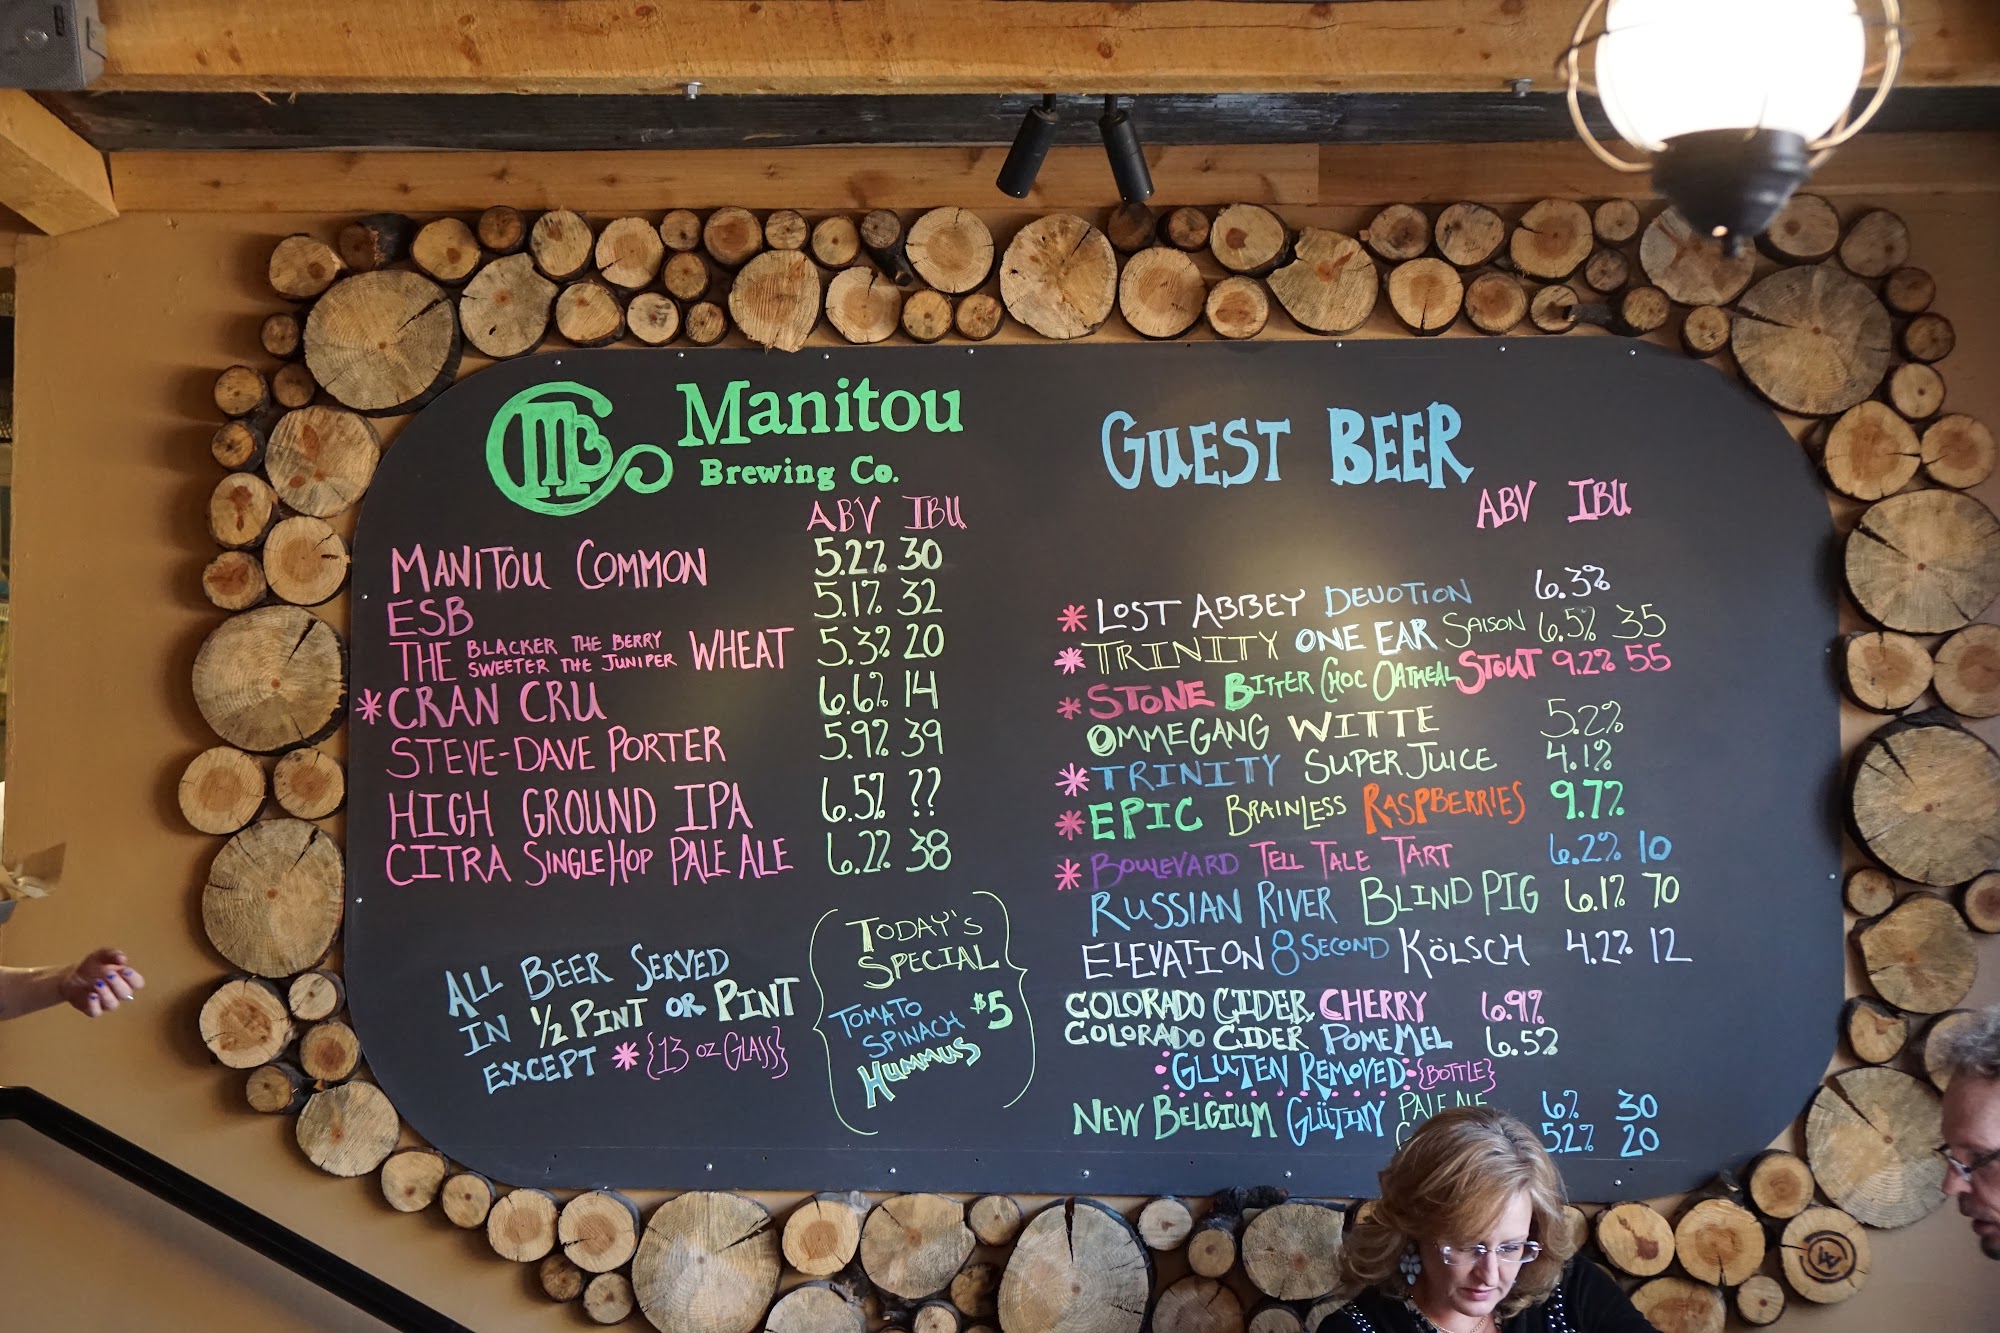 Manitou
Brewing Co.
ABV IBU
MANITOU COMMON 5.2% 30
ESB 5.1% 32
THE BLACKER THE BERRY SWEETER THE JUNIPER WHEAT 5.3% 20
* CRAN CRU 6.6% 14
STEVE-DAVE PORTER 5.9% 39
HIGH GROUND IPA 6.5% ??
CITRA SINGLE HOP PALE ALE 6.2% 38
ALL BEER SERVED
IN 1/2 PINT OR PINT
EXCEPT * {13 OZ GLASS}
TODAY'S
SPECIAL
TOMATO
SPINACH $5
HUMMUS
GUEST BEER
ABV IBU
* LOST ABBEY DEVOTION 6.3%
* TRINITY ONE EAR SAISON 6.5% 35
* STONE BITTER CHOC OATMEAL STOUT 9.2% 55
OMMEGANG WITTE 5.2%
* TRINITY SUPER JUICE 4.1%
* EPIC BRAINLESS RASPBERRIES 9.7%
* BOULEVARD TELL TALE TART 6.2% 10
RUSSIAN RIVER BLIND PIG 6.1% 70
ELEVATION 8 SECOND KÖLSCH 4.2% 12
COLORADO CIDER CHERRY 6.9%
COLORADO CIDER POME MEL 6.5%
GLUTEN REMOVED {BOTTLE}
NEW BELGIUM GLÜTINY PALE ALE 6% 30
5.2% 20